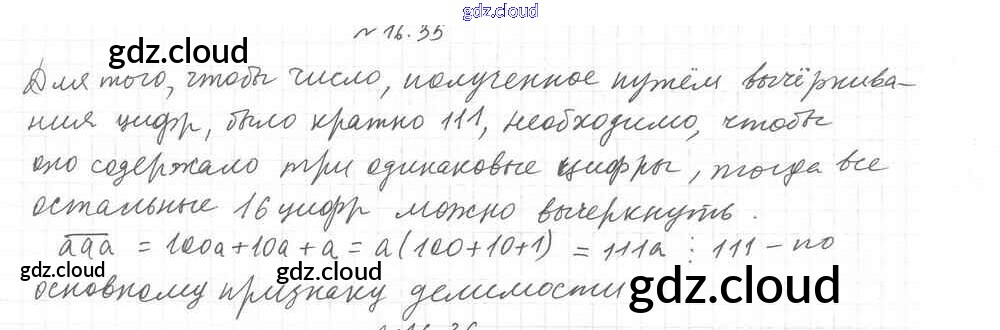 gdz.cloud
№ 16.35
gdz.cloud gdz.cloud
Для того, чтобы число, полученное путём вычёркива-
ния цифр, было кратно 111, необходимо, чтобы
оно содержало три одинаковые цифры, тогда все
остальные 16 цифр можно вычеркнуть.
ааа = 100а+10а+а = а(100+10+1) = 111а ⋮ 111 – по
gdz.cloud gdz.cloud gdz.cloud
основному признаку делимости